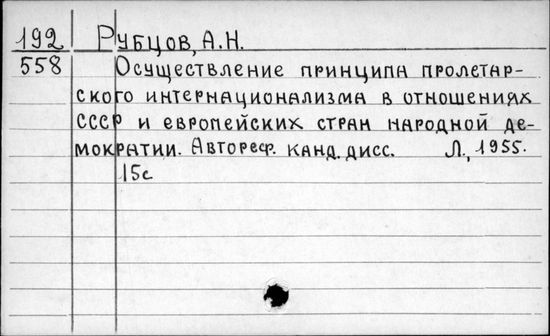 192 Рубцов, А.Н.
558 Осуществление принципа пролетар-
ского интернационализма в отношениях
СССР и европейских стран народной де-
мократии. Автореф. канд. дисс. Л., 1955.
15с